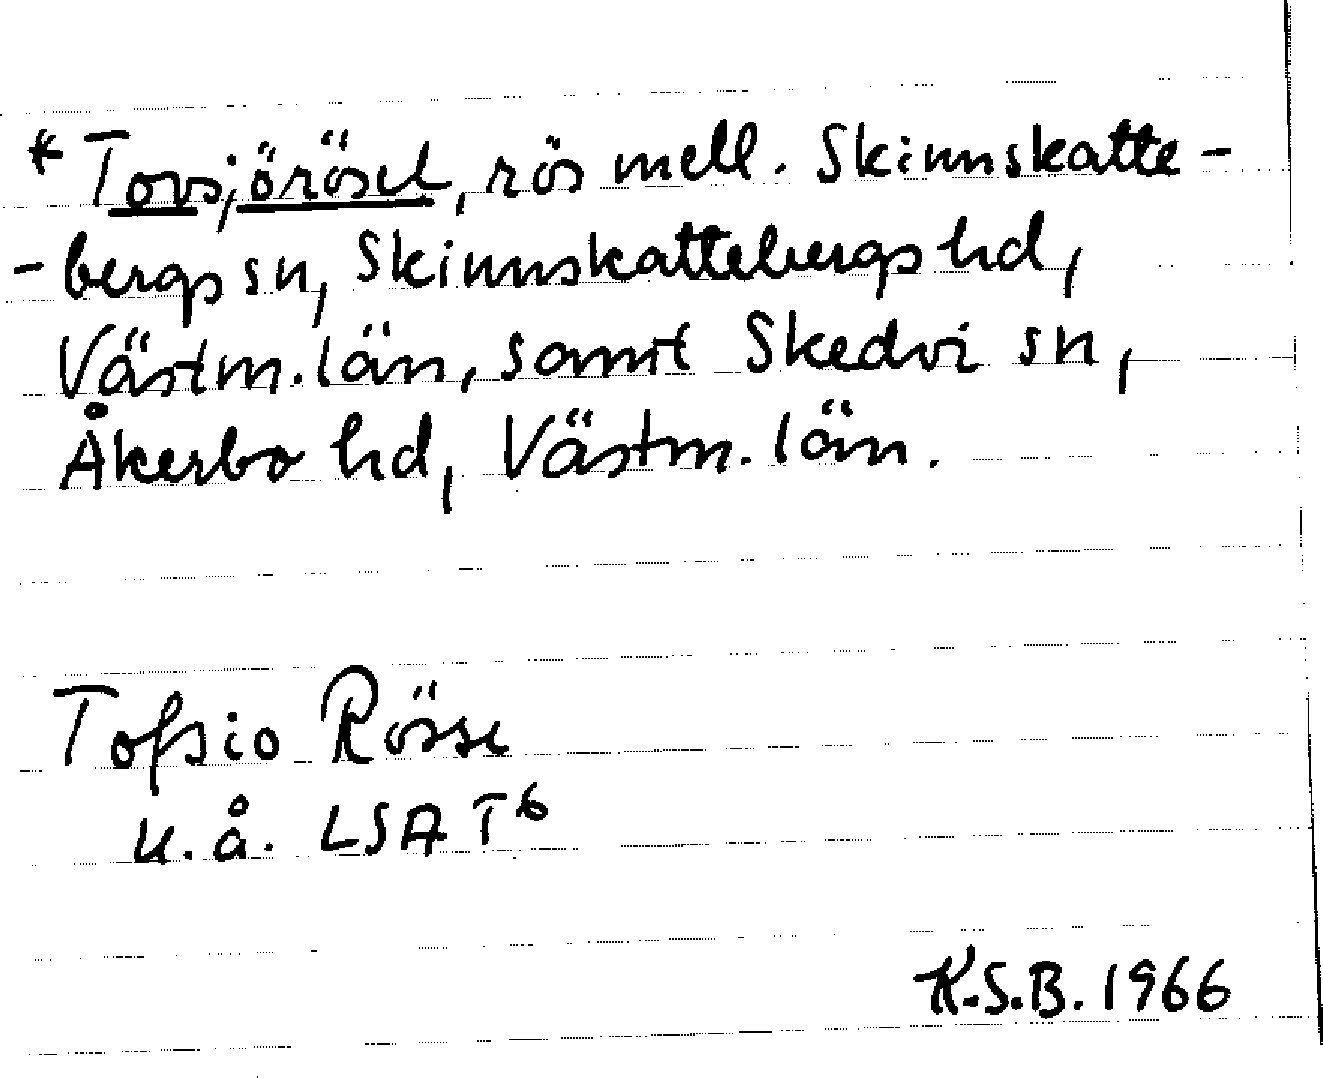 * Tovsjöröset, rös mell. Skinnskatte-
-bergs sn, Skinnskattebergs hd,
Västm. län, samt Skedvi sn,
Åkerbo hd, Västm. län.
Tofsio Rösse
u.å. LSA T6
K.S.B. 1966